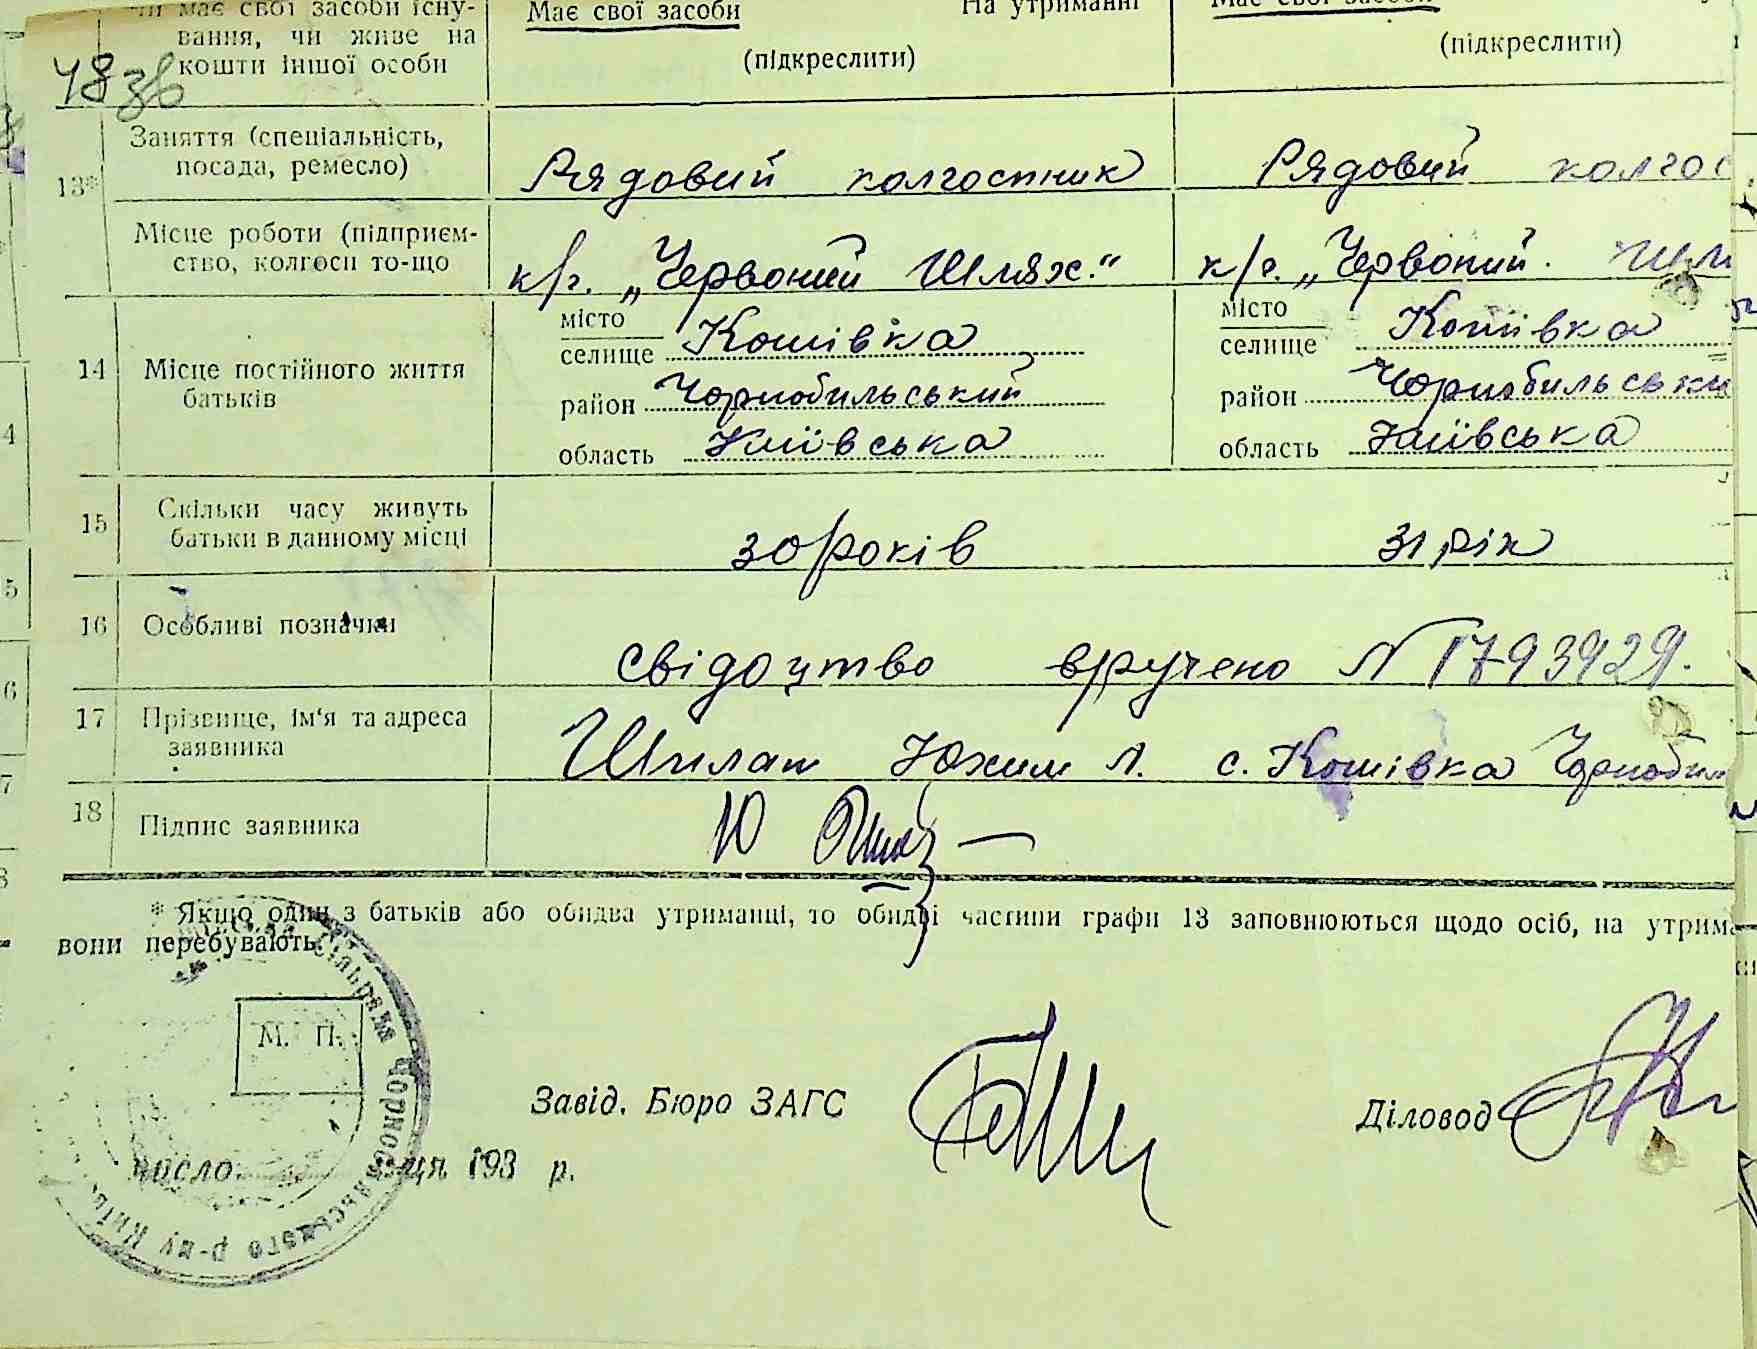 має свої засоби існу-
вання, чи живе на
кошти іншої особи
Має свої засоби
На утриманні
Має свої засоби
(підкреслити)
(підкреслити)
48 зв
13*
Заняття (спеціальність,
посада, ремесло)
Рядовий колгоспник
Рядовий колгос
Місце роботи (підприєм-
ство, колгосп то-що
к/г. „Червоний Шлях."
к/г. „Червоний. Шля
14
Місце постійного життя
батьків
місто
селище Кошівка
район Чорнобильський
область Київська
місто
селище Кошівка
район Чорнобильськи
область Київська
15
Скільки часу живуть
батьки в данному місці
30 років
31 рік
16
Особливі позначки
свідоцтво вручено N 1793929.
17
Прізвище, ім'я та адреса
заявника
Шпилат Юхим Л. с. Кошівка Чорнобил
18
Підпис заявника
Ю
* Якщо один з батьків або обидва утриманці, то обидві частини графи 13 заповнюються щодо осіб, на утрим
вони перебувають.
М. П.
Чорнобильського р-ну Київ.
Завід. Бюро ЗАГС
Діловод
число
ця 193 р.